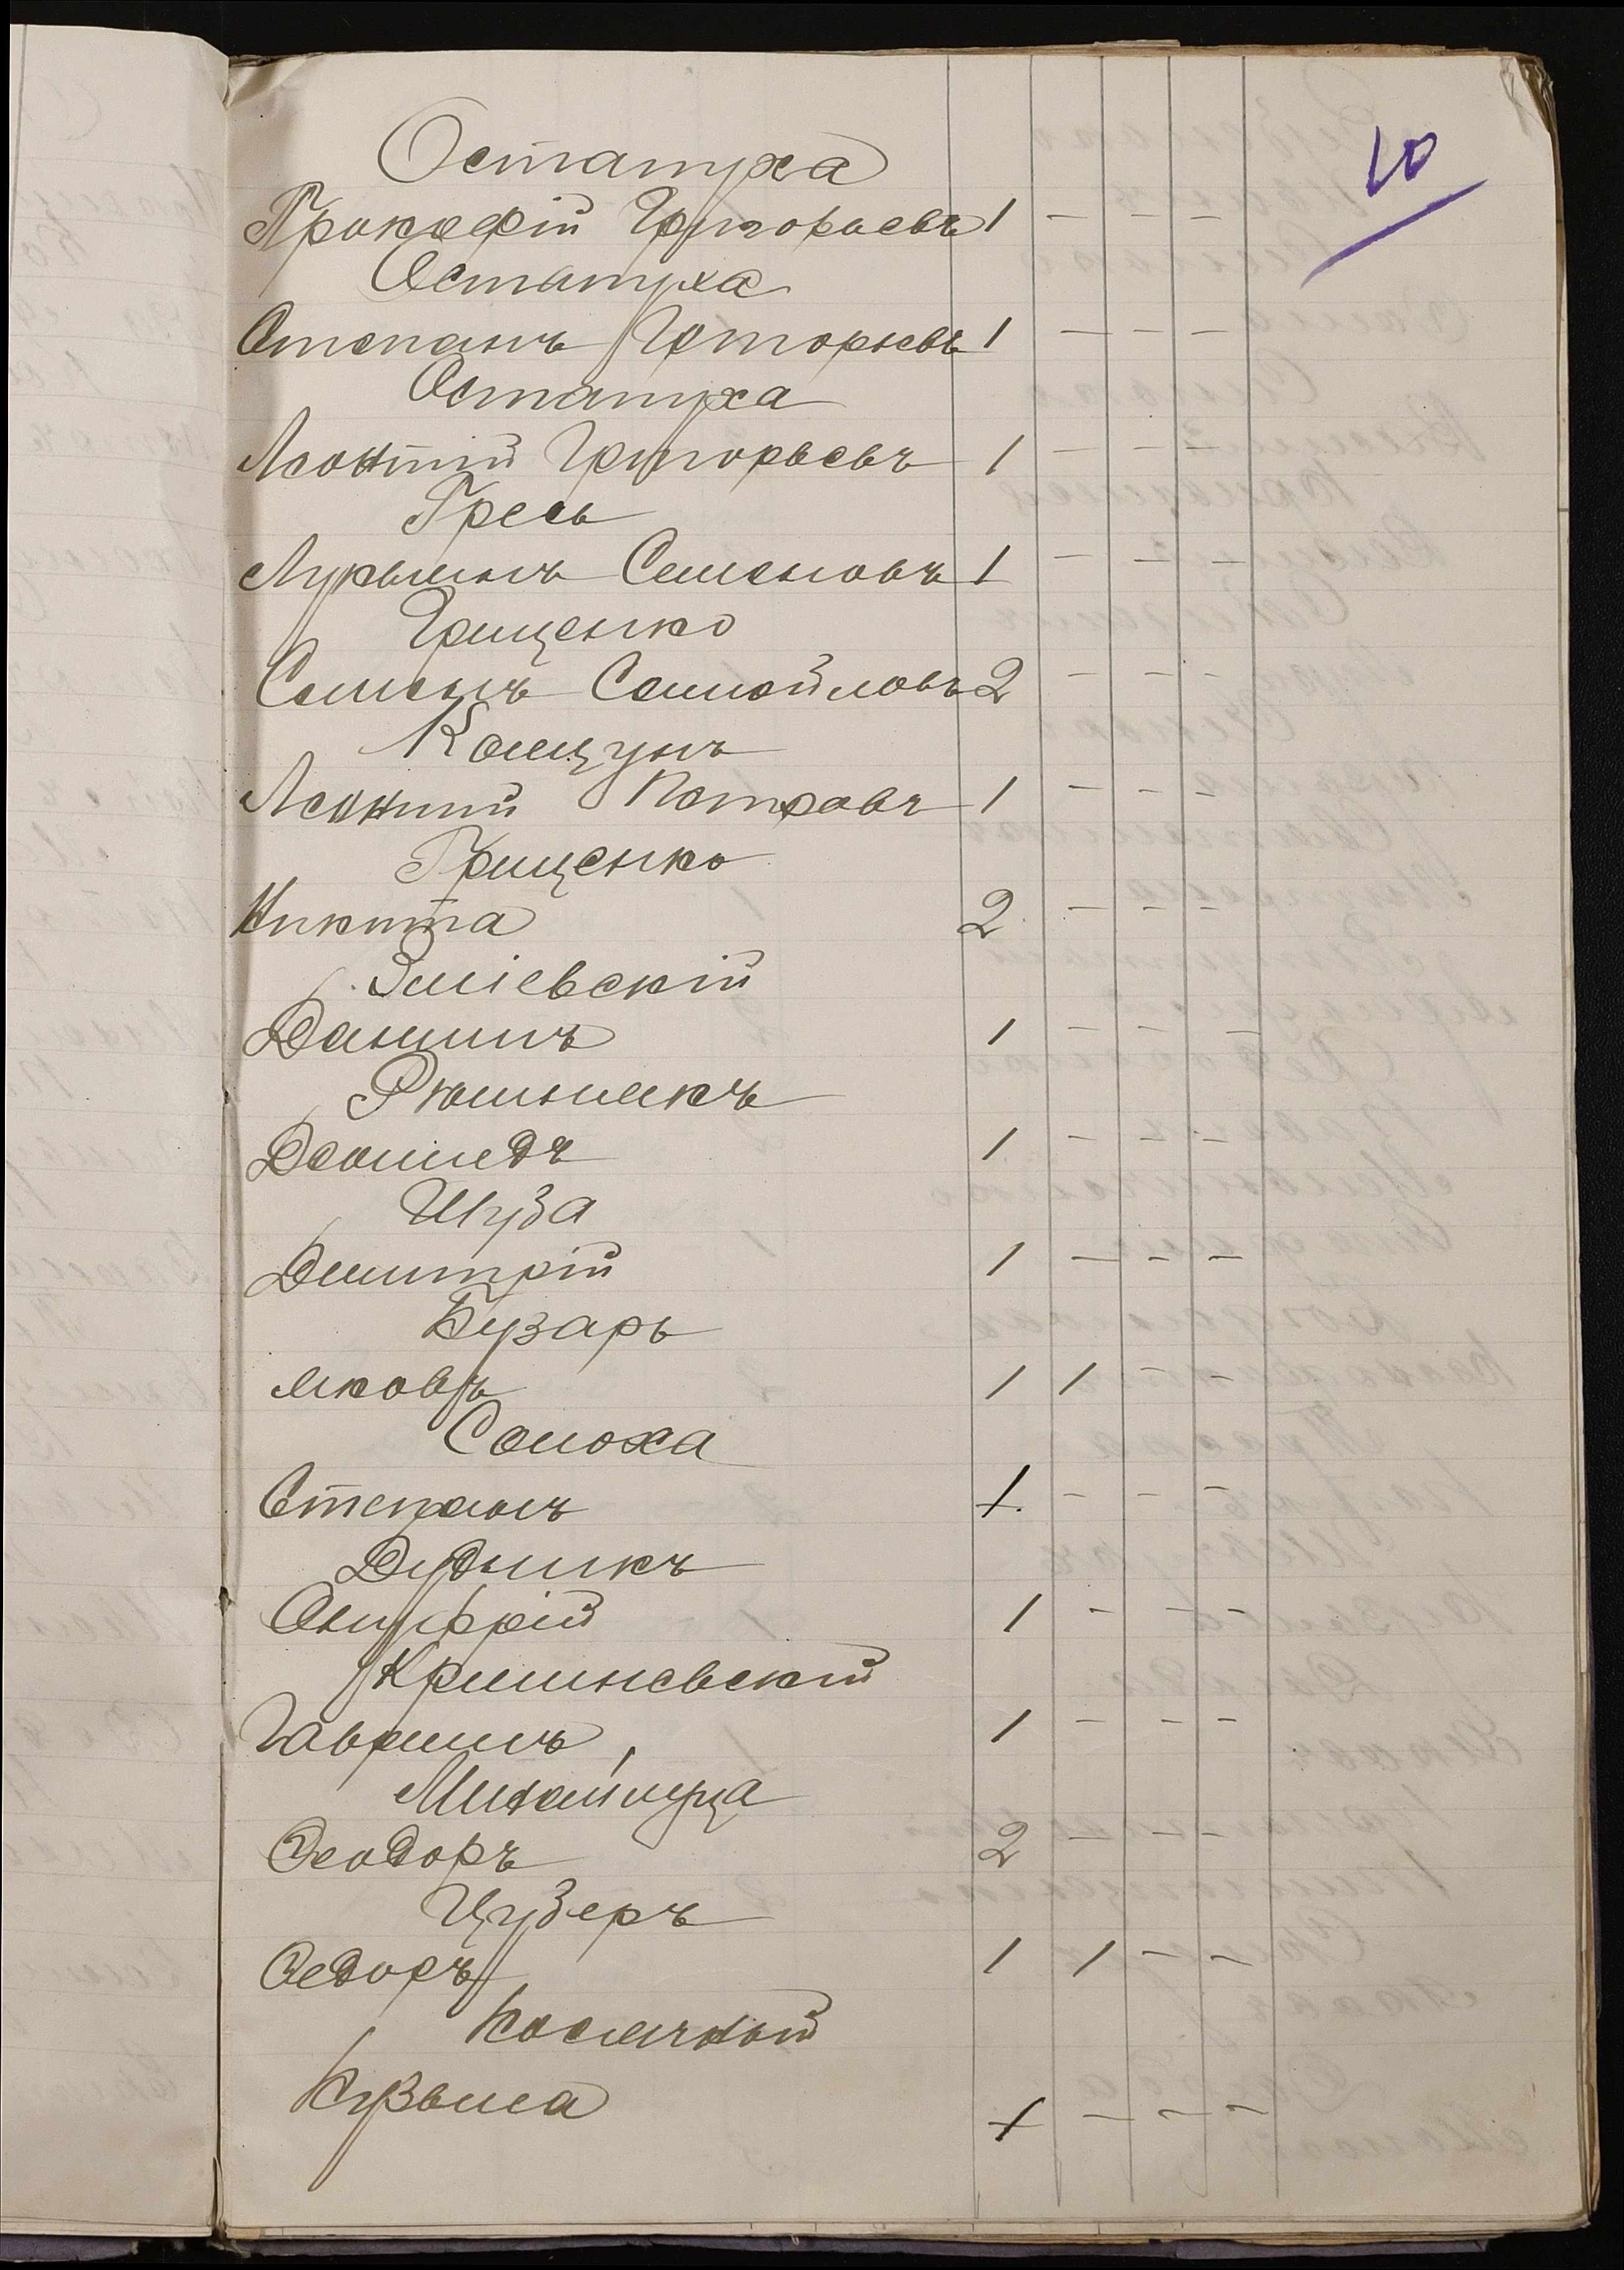 10
Остапуха
Прокофій Григорьевъ 1 - - -
Остапуха
Степанъ Григорьевъ 1 - - -
Остапуха
Леонтій Григорьевъ 1 - - -
Гресь
Лукьянъ Семеновъ 1 - - -
Грищенко
Семенъ Самойловъ 2 - - -
Коецунъ
Леонтій Петровъ 1 - - -
Грищенко
Никита 2 - - -
Зміевскій
Даніилъ 1 - - -
Демидъ 1 - - -
Шуба
Димитрій 1 - - -
Бузарь
Яковъ 1 1 - -
Солоха
Степанъ 1 - - -
Дудникъ
Онуфрій 1 - - -
Гавриилъ 1 - - -
Михайлуца
Феодоръ 2 - - -
Цуберъ
Федоръ 1 1 - -
Кузьма 1 - - -